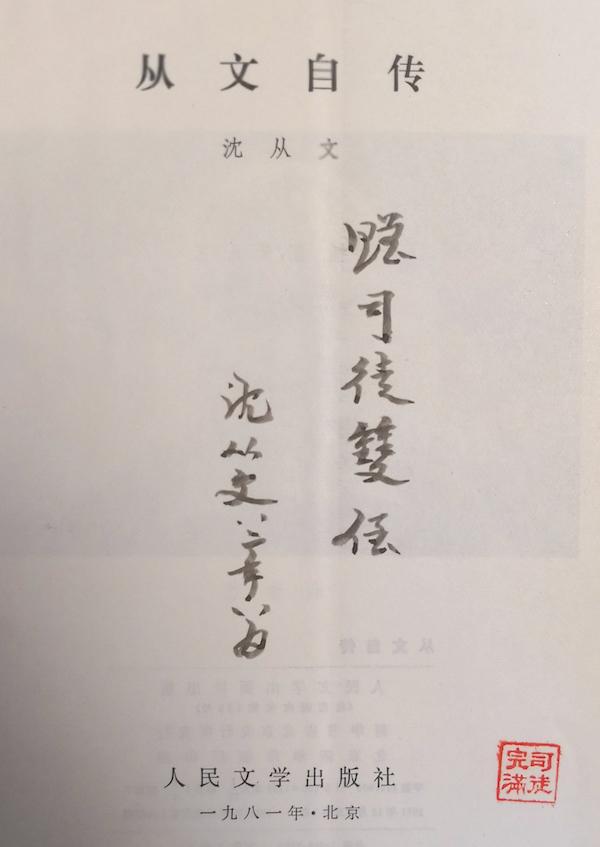 从文自传
沈从文
司徒雙
沈从文 八二年八月
人民文学出版社
一九八一年·北京
司徒
完满